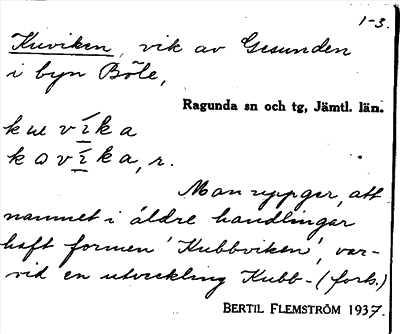 1-3.
Kuviken, vik av Gesunden
i byn Böle,
Ragunda sn och tg, Jämtl. län.
kuu víka
kɷ víka, r.
Man uppger, att
namnet i äldre handlingar
haft formen 'Kubbviken', var-
vid en utveckling Kubb- (forts.)
BERTIL FLEMSTRÖM 1937.